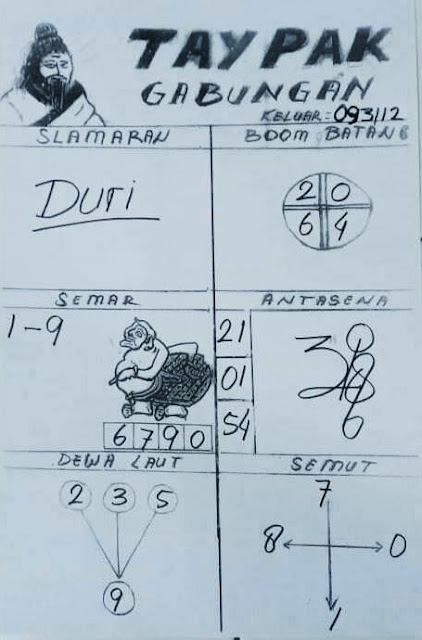 TAYPAK
GABUNGAN
KELUAR: 093/12
SLAMARAN
BOOM BATANG
Duri
2 0
6 4
SEMAR
ANTASENA
1-9
21
01
54
6 7 9 0
DEWA LAUT
SEMUT
2 3 5
9
7
8 0
1